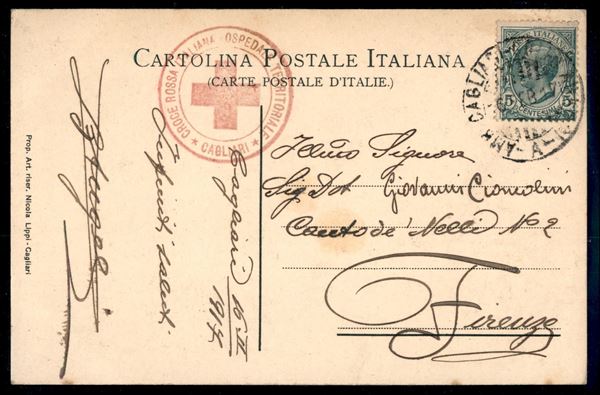 CARTOLINA POSTALE ITALIANA
(CARTE POSTALE D'ITALIE.)
CROCE ROSSA ITALIANA - OSPEDALE TERRITORIALE
★ CAGLIARI ★
POSTE ITALIANE
5 CENTESIMI 5
CAGLIARI
Illmo Signore
Sig Dot Giovanni
Canto de' Nelli No 2
Firenze
Cagliari 16 II
saluti
Prop. Art. riser. Nicola Lippi - Cagliari